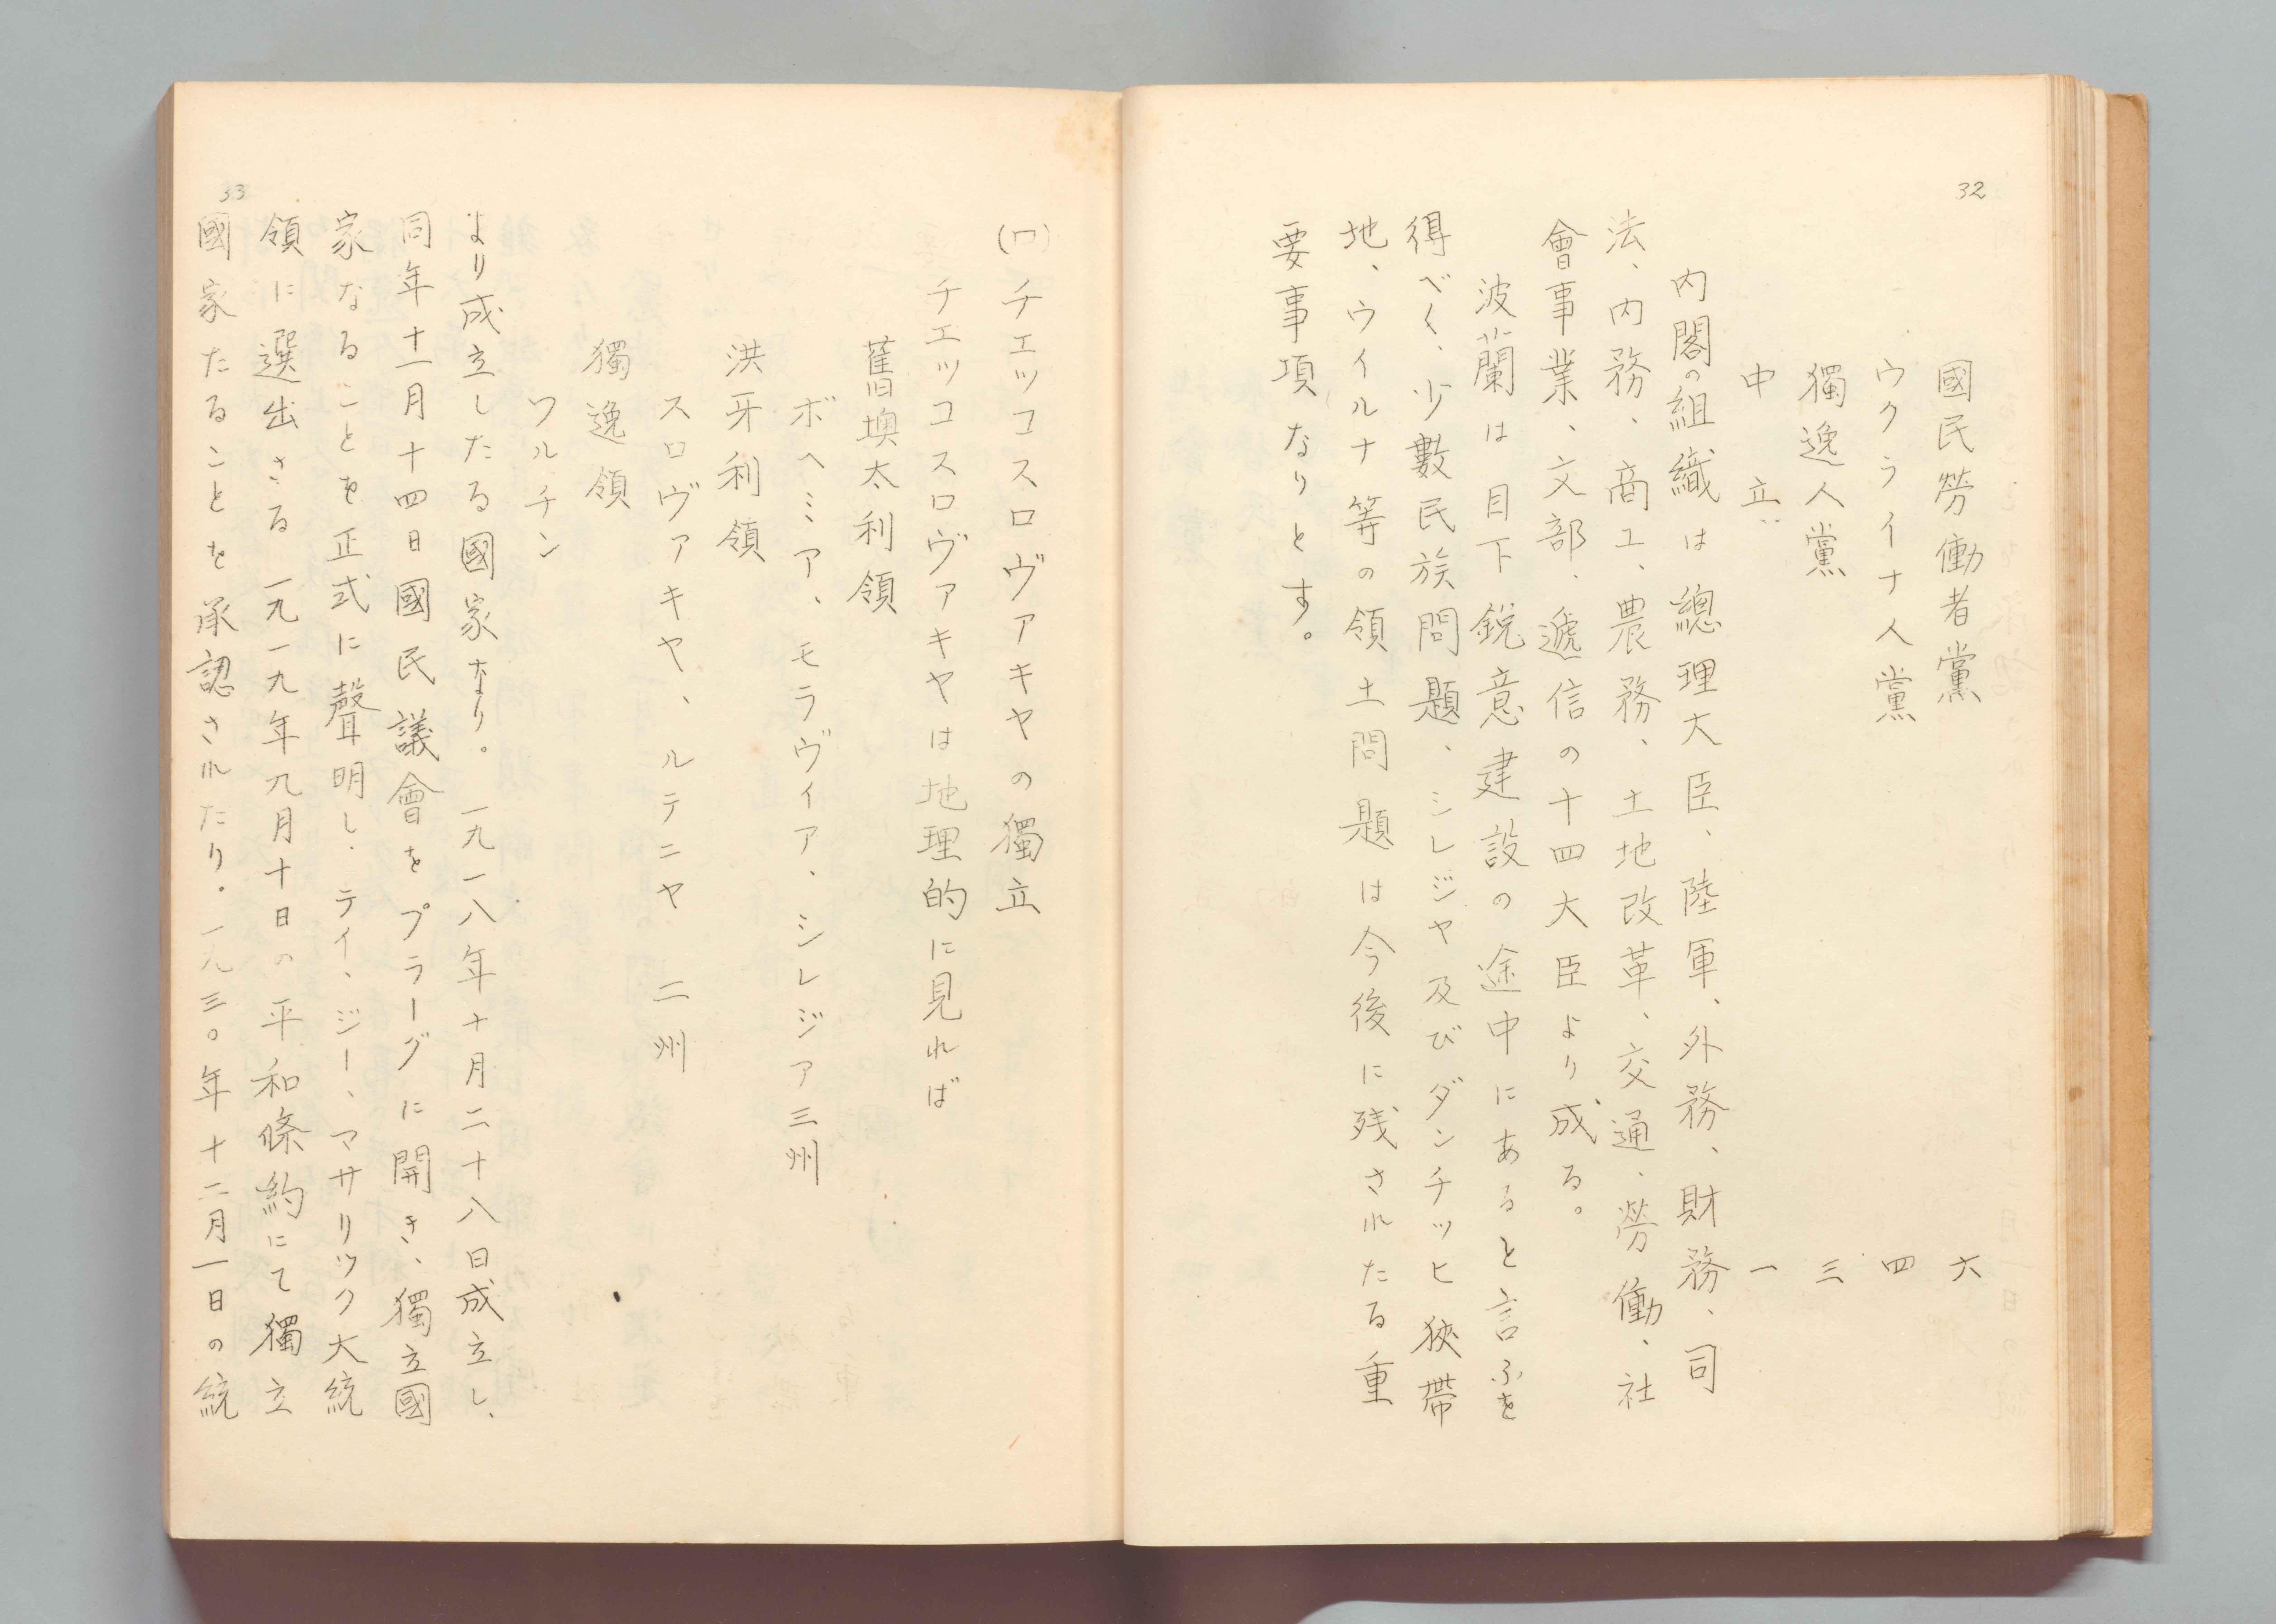 32
國民勞働者黨 六
ウクライナ人黨 四
獨逸人黨 三
中立 一
内閣の組織は總理大臣、陸軍、外務、財務、司
法、内務、商工、農務、土地改革、交通、勞働、社
會事業、文部、遞信の十四大臣より成る。
波蘭は目下鋭意建設の途中にあると言ふを
得べく、少數民族問題、シレジヤ及びダンチッヒ狹帶
地、ウイルナ等の領土問題は今後に残されたる重
要事項なりとす。
(ロ)チェッコスロヴァキヤの獨立
チエツコスロヴァキヤは地理的に見れば
舊墺太利領
ボヘミア、モラヴィア、シレジア三州
洪牙利領
スロヴァキヤ、ルテニヤ 二州
獨逸領
ワルチン
より成立したる國家なり。一九一八年十月二十八日成立し、
同年十一月十四日國民議會をプラーグに開き、獨立國
家なることを正式に聲明し、テイ、ジー、マサリック大統
領に選出さる 一九一九年九月十日の平和條約にて獨立
國家たることを承認されたり。一九三〇年十二月一日の統
33